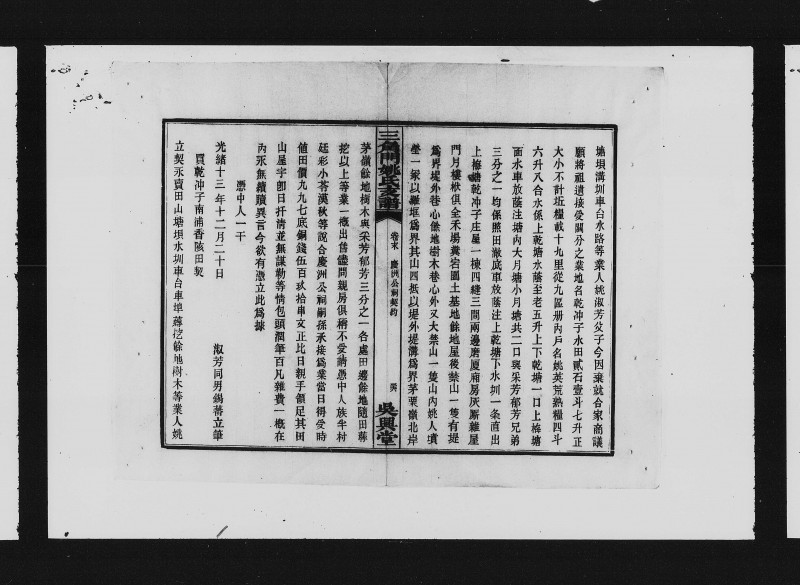 塘垻溝圳車台水路等業人姚淑芳父子今因棄就合家商議
願將祖遺接受關分之業地名乾冲子水田貳石壹斗七升正
大小不計坵糧載十九里從九區册内戶名姚英荒熟糧四斗
六升八合水係上乾塘水蔭至老五升上下乾塘一口上𣗳塘
面水車放蔭注塘内大月塘小月塘共二口與采芳郁芳兄弟
三分之一均係照田澈底車放蔭注上乾塘下水圳一条直出
上𣗳塘乾冲子庄屋一棟四縫三間兩邊磨厦廂房灰厰雜屋
門月樓栿俱全禾場糞宕園土基地餘地屋後禁山一隻有堤
爲界堤外巷心餘地樹木巷心外又大禁山一隻山内姚人墳
塋一冢以羅圍爲界其山四抵以堤外堤溝爲界茅栗嶺北岸
三角門姚氏支譜
卷末
慶洲公祠契約
吳興堂
茅嶺餘地樹木與采芳郁芳三分之一各處田邊餘地隨田蔴
挖以上等業一概出售儘問親房俱稱不受請憑中人族芈村
廷彩小莟漢秋等說合慶洲公祠嗣孫承接爲業當日得受時
値田價九九七底銅錢伍百玖拾串文正比日親手領足其田
山屋宇卽日扦清並無謀勒等情包頭潤筆百凡雜費一概在
内永無續贖異言今欲有憑立此爲據
憑中人一干
光緒十三年十二月二十日
淑芳同男錫蕃立筆
買乾冲子南浦香陔田契
立契永賣田山塘垻水圳車台車埠蔴挖餘地樹木等業人姚